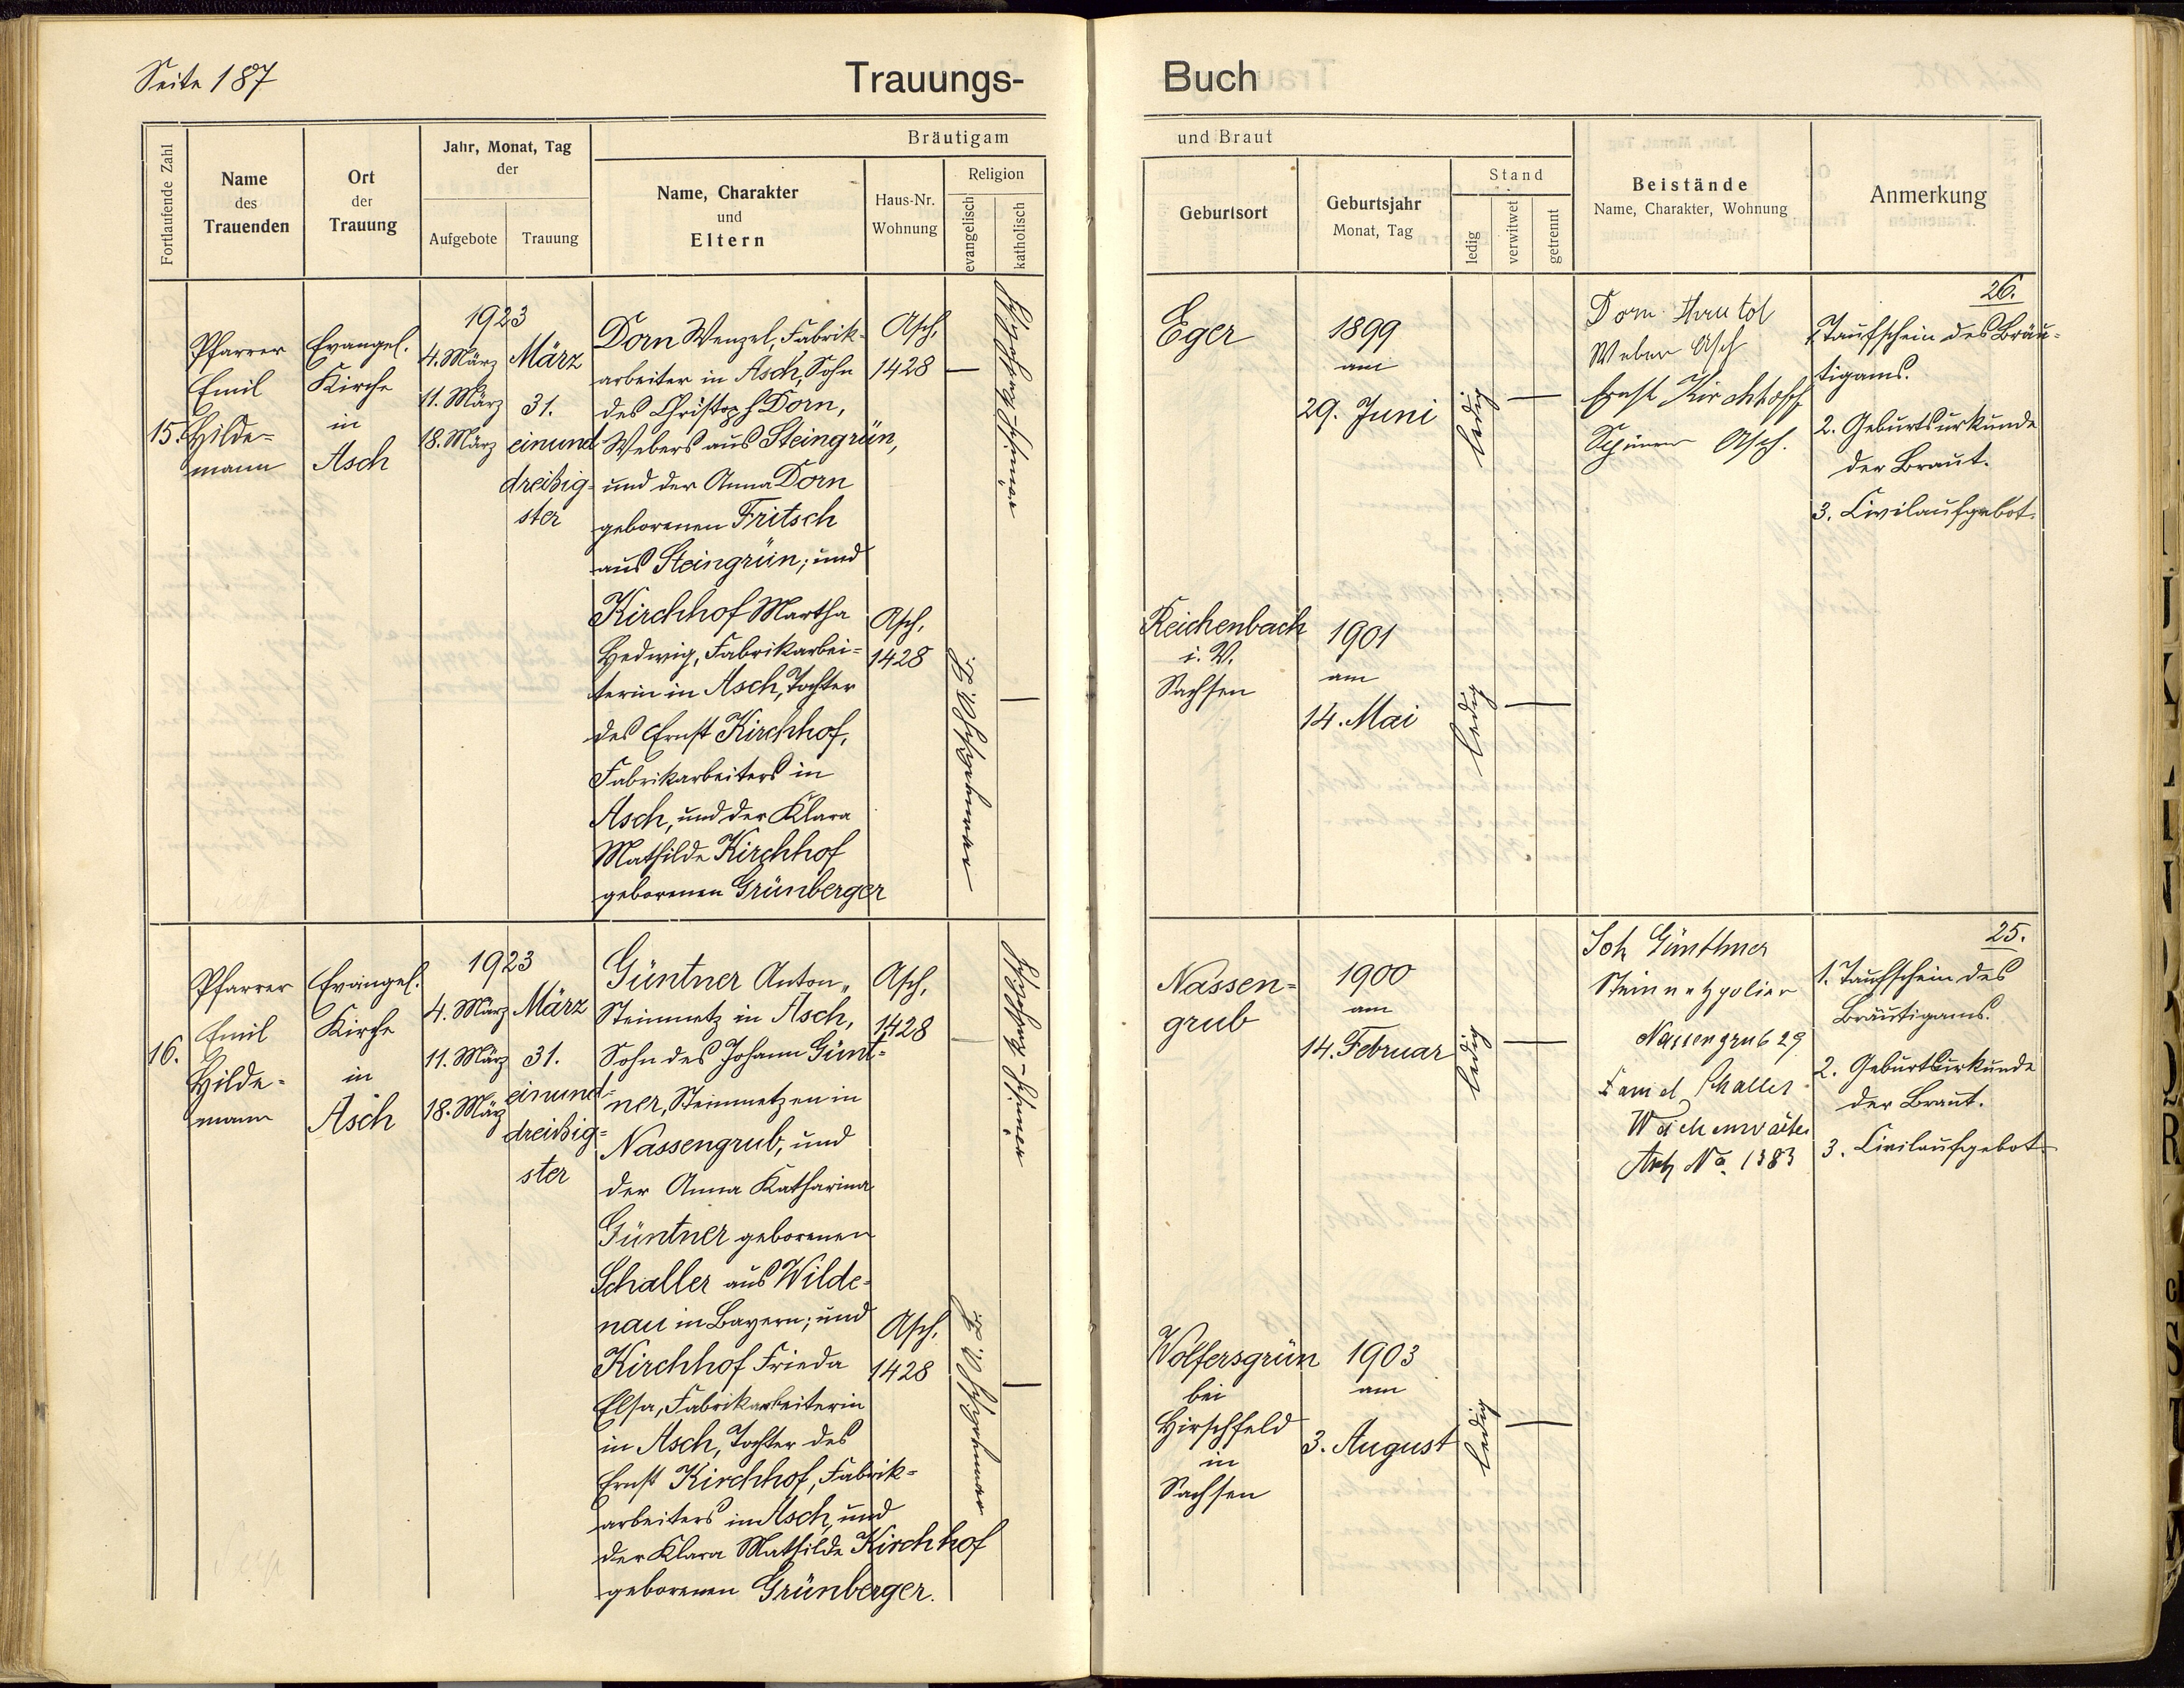 Seite 187
Trauungs-
Buch
Fortlaufende Zahl
Name
des
Trauenden
Ort
der
Trauung
Jahr, Monat, Tag
der
Aufgebote
Trauung
Bräutigam
Name, Charakter
und
Eltern
Haus-Nr.
Wohnung
Religion
evangelisch
katholisch
und Braut
Geburtsort
Geburtsjahr
Monat, Tag
Stand
ledig
verwitwet
getrennt
Beistände
Name, Charakter, Wohnung
Anmerkung
15.
Pfarrer
Emil
Hilde-
mann
Evangel.
Kirche
in
Asch
1923
4. März
11. März
18. März
März
31.
einund-
dreißig-
ster
Dorn Wenzel, Fabrik-
arbeiter in Asch, Sohn
des Christoph Dorn,
Webers aus Steingrün,
und der Anna Dorn
geborenen Fritsch
aus Steingrün; und
Kirchhof Martha
Hedwig, Fabrikarbei-
terin in Asch, Tochter
des Ernst Kirchhof,
Fabrikarbeiters in
Asch, und der Klara
Mathilde Kirchhof
geborenen Grünberger
Asch,
1428
Asch,
1428
Eger
1899
am
29. Juni
ledig
Reichenbach
i. V.
Sachsen
1901
am
14. Mai
ledig
Dorn
Weber Asch
Ernst Kirchhoff
Asch.
26.
1. Taufschein des Bräu-
tigams.
2. Geburtsurkunde
der Braut.
3. Civilaufgebot.
16.
Pfarrer
Emil
Hilde-
mann
Evangel.
Kirche
in
Asch
1923
4. März
11. März
18. März
März
31.
einund-
dreißig-
ster
Güntner Anton,
Steinmetz in Asch,
Sohn des Johann Günt-
ner, Steinmetzen in
Nassengrub, und
der Anna Katharina
Güntner geborenen
Schaller aus Wilde-
nau in Bayern; und
Kirchhof Frieda
Elsa, Fabrikarbeiterin
in Asch, Tochter des
Ernst Kirchhof, Fabrik-
arbeiters in Asch, und
der Klara Mathilde Kirchhof
geborenen Grünberger.
Asch,
1428
Asch,
1428
Nassen-
grub
1900
am
14. Februar
ledig
Wolfersgrün
bei
Hirschfeld
in
Sachsen
1903
am
3. August
ledig
Joh Günthner
Steinmetzpolier
Nassengrub 29
Schaller
No. 1383
25.
1. Taufschein des
Bräutigams.
2. Geburtsurkunde
der Braut.
3. Civilaufgebot.